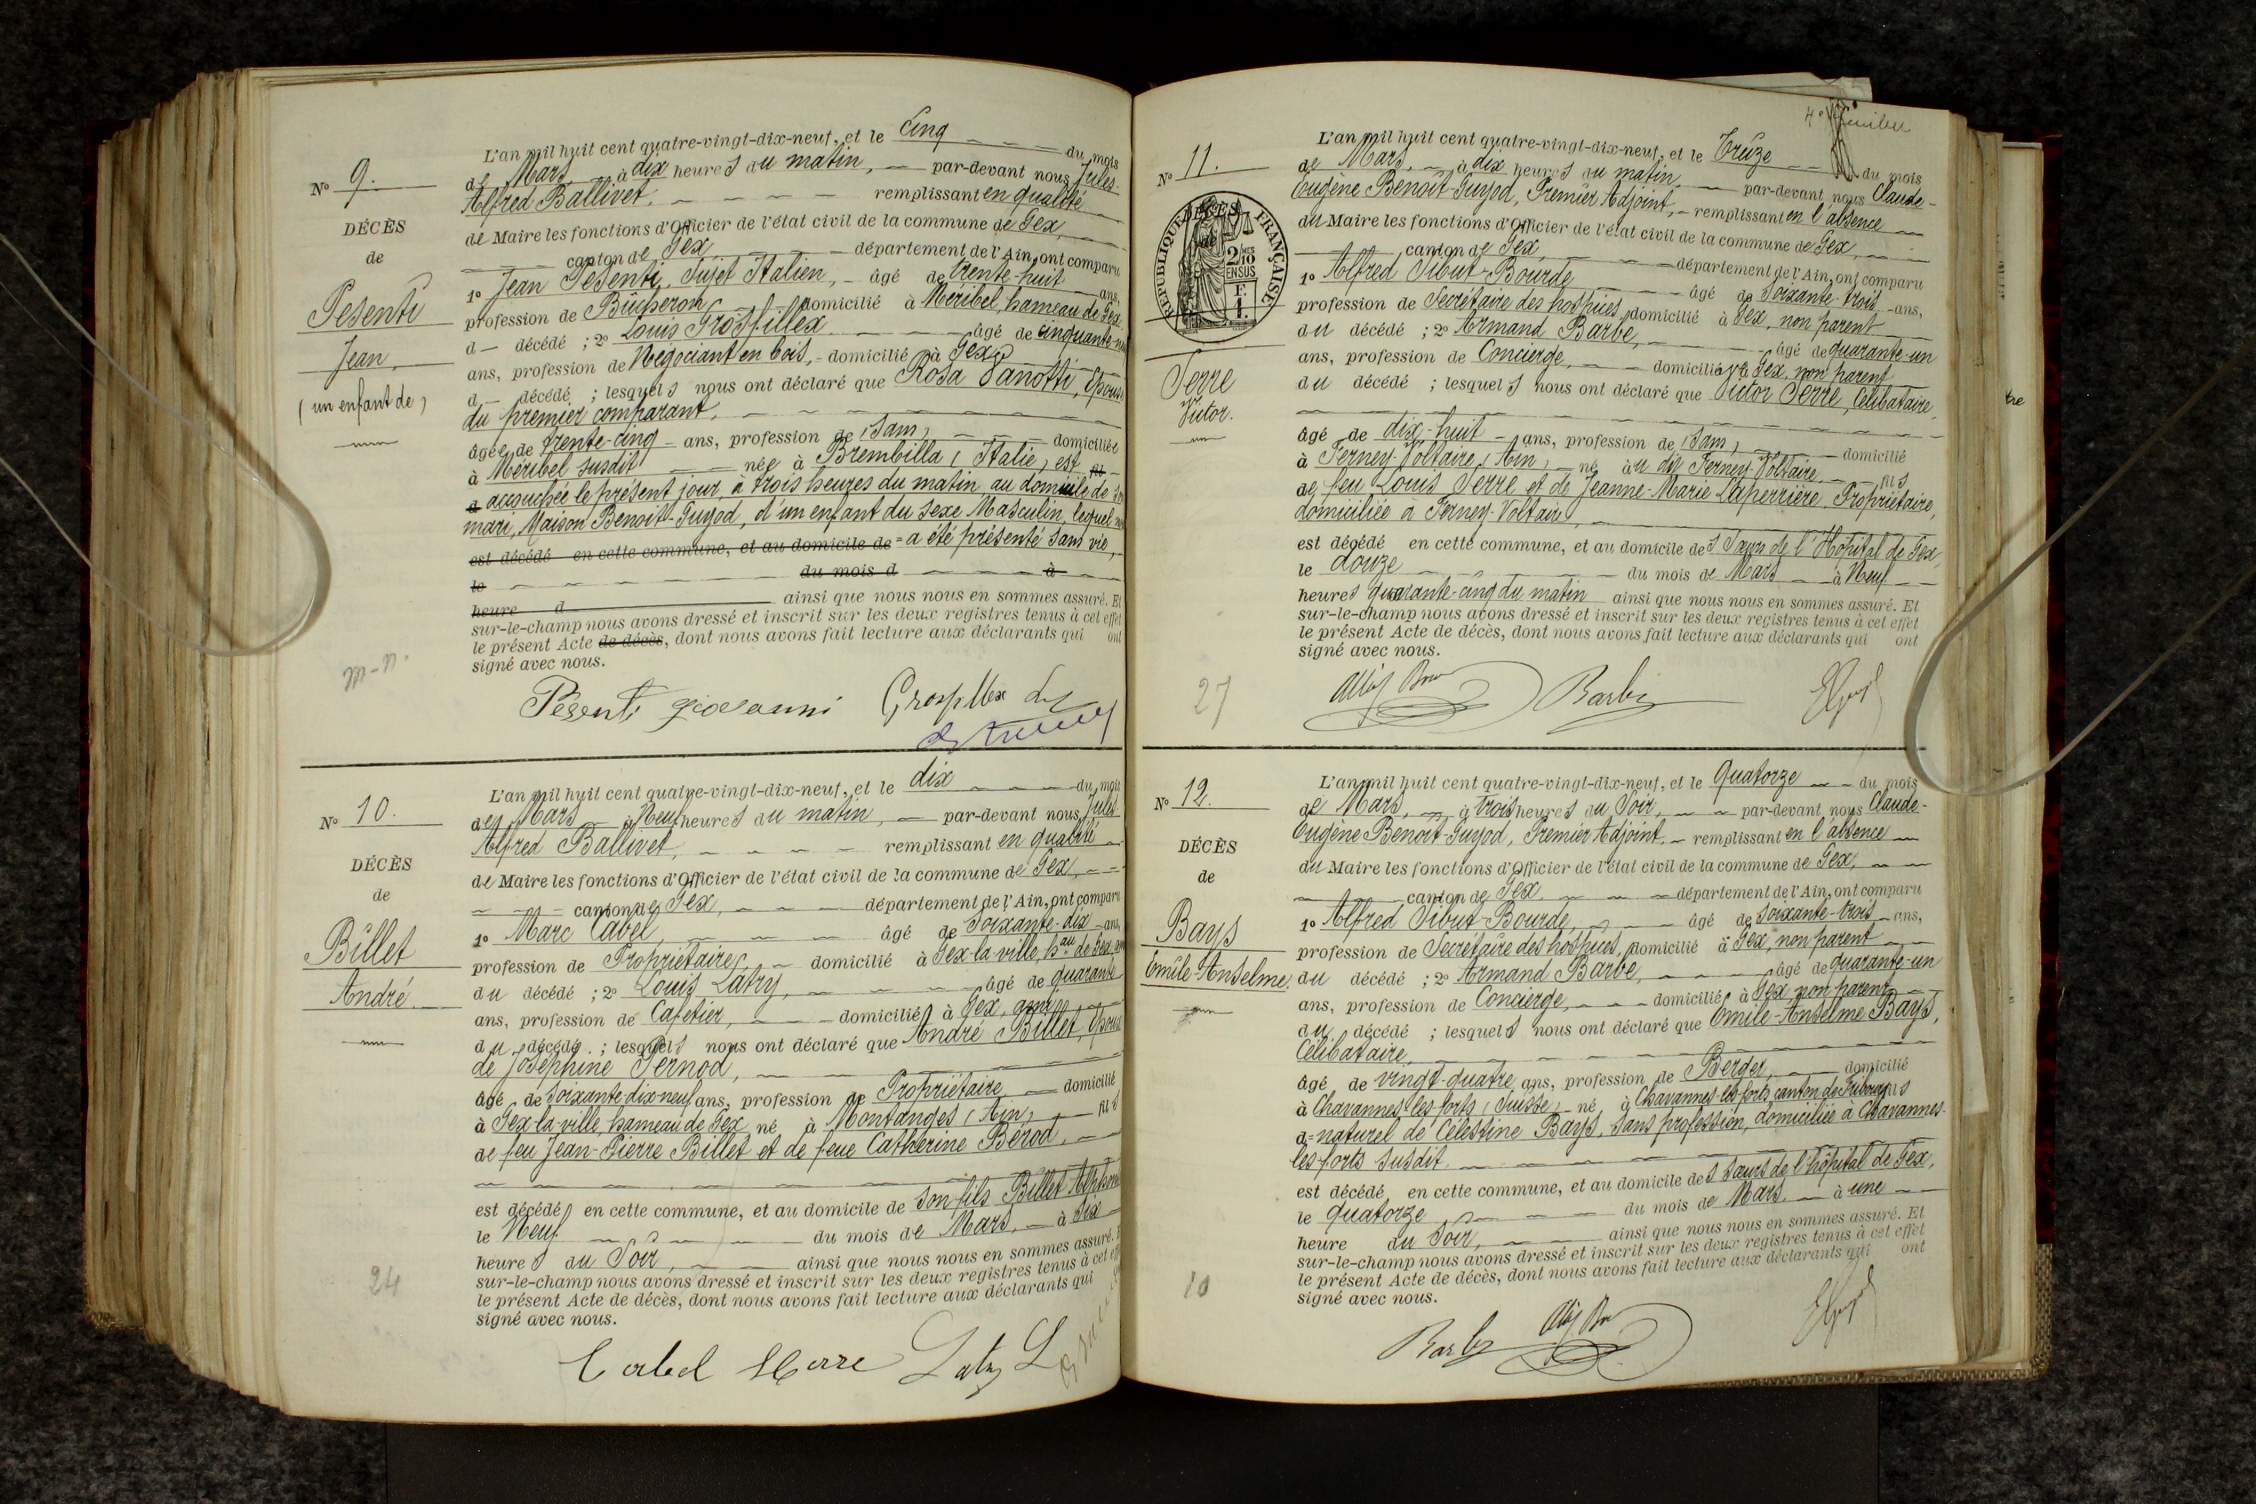 No 9.
DÉCÈS
de
Pesenti
Jean,
(un enfant de)
m-n.
L'an mil huit cent quatre-vingt-dix-neuf, et le Cinq du mois
de Mars à dix heures du matin, par-devant nous Jules-
Alfred Ballivet, remplissant en qualité
de Maire les fonctions d'Officier de l'état civil de la commune de Gex,
canton de Gex département de l'Ain, ont comparu
1o Jean Pesenti, Sujet Italien, âgé de trente-huit ans,
profession de Bûcheron domicilié à Méribel, hameau de Gex
d décédé ; 2o Louis Grosfillex âgé de cinquante-
ans, profession de Négociant en bois, domicilié à Gex
d décédé ; lesquels nous ont déclaré que Rosa Zanotti, Epouse
du premier comparant,
âgée de trente-cinq ans, profession de (sans) domiciliée
à Méribel susdit née à Brembilla (Italie) est fil
d accouchée le présent jour, à trois heures du matin au domicile de son
mari, Maison Benoît-Guyod, d'un enfant du sexe Masculin, lequel nous
est décédé en cette commune, et au domicile de = a été présenté sans vie,
le du mois d à
heure d ainsi que nous nous en sommes assuré. Et
sur-le-champ nous avons dressé et inscrit sur les deux registres tenus à cet effet
le présent Acte de décès, dont nous avons fait lecture aux déclarants qui ont
signé avec nous.
Pesenti giovanni Grosfillex
No 10.
DÉCÈS
de
Billet
André
24
L'an mil huit cent quatre-vingt-dix-neuf, et le dix du mois
de Mars à Neuf heures du matin, par-devant nous Jules
Alfred Ballivet, remplissant en qualité
de Maire les fonctions d'Officier de l'état civil de la commune de Gex,
canton de Gex, département de l'Ain, ont comparu
1o Marc Cabel, âgé de Soixante-dix ans,
profession de Propriétaire, domicilié à Gex-la-ville, hau de Gex, ami
du décédé ; 2o Louis Latry, âgé de quarante
ans, profession de Cafetier, domicilié à Gex, ami
du décédé ; lesquels nous ont déclaré que André Billet, Epoux
de Joséphine Pernod,
âgé de Soixante-dix-neuf ans, profession de Propriétaire domicilié
à Gex-la-ville, hameau de Gex né à Montanges (Ain) fils
de feu Jean-Pierre Billet et de feue Catherine Bérod,
est décédé en cette commune, et au domicile de son fils Billet Alphonse
le Neuf du mois de Mars, à Six
heures du Soir, ainsi que nous nous en sommes assuré. Et
sur-le-champ nous avons dressé et inscrit sur les deux registres tenus à cet effet
le présent Acte de décès, dont nous avons fait lecture aux déclarants qui
signé avec nous.
Cabel Marc Latry L
4e feuillet
No 11.
DÉCÈS
de
RÉPUBLIQUE FRANÇAISE
2/10 EN SUS
F.
1.
Serre
Victor.
27
L'an mil huit cent quatre-vingt-dix-neuf, et le Treize du mois
de Mars, à dix heures du matin, par-devant nous Claude-
Eugène Benoît-Guyod, Premier Adjoint, remplissant en l'absence
du Maire les fonctions d'Officier de l'état civil de la commune de Gex,
canton de Gex, département de l'Ain, ont comparu
1o Alfred Sibut-Bourde, âgé de Soixante-trois ans,
profession de Secrétaire des hospices, domicilié à Gex, non parent
du décédé ; 2o Armand Barbe, âgé de quarante-un
ans, profession de Concierge, domicilié à Gex, non parent
du décédé ; lesquels nous ont déclaré que Victor Serre, Célibataire,
âgé de dix-huit ans, profession de (sans) domicilié
à Ferney-Voltaire (Ain) né au dit Ferney-Voltaire fils
de feu Louis Serre et de Jeanne-Marie Laperrière, Propriétaire,
domiciliée à Ferney-Voltaire,
est décédé en cette commune, et au domicile des Sœurs de l'Hôpital de Gex,
le douze du mois de Mars à Neuf
heures quarante-cinq du matin ainsi que nous nous en sommes assuré. Et
sur-le-champ nous avons dressé et inscrit sur les deux registres tenus à cet effet
le présent Acte de décès, dont nous avons fait lecture aux déclarants qui ont
signé avec nous.
Barbe
No 12.
DÉCÈS
de
Bays
Emile-Anselme,
10
L'an mil huit cent quatre-vingt-dix-neuf, et le Quatorze du mois
de Mars, à trois heures du Soir, par-devant nous Claude-
Eugène Benoît-Guyod, Premier Adjoint, remplissant en l'absence
du Maire les fonctions d'Officier de l'état civil de la commune de Gex,
canton de Gex département de l'Ain, ont comparu
1o Alfred Sibut-Bourde, âgé de soixante-trois ans,
profession de Secrétaire des hospices, domicilié à Gex, non parent
du décédé ; 2o Armand Barbe, âgé de quarante-un
ans, profession de Concierge, domicilié à Gex, non parent
du décédé ; lesquels nous ont déclaré que Emile-Anselme Bays,
Célibataire,
âgé de vingt-quatre ans, profession de Berger, domicilié
à Chavannes-les-forts (Suisse) né à Chavannes-les-forts, canton de Fribourg fils
d = naturel de Célestine Bays, sans profession, domiciliée à Chavannes-
les-forts susdit.
est décédé en cette commune, et au domicile des Sœurs de l'hôpital de Gex,
le quatorze du mois de Mars, à une
heure du Soir, ainsi que nous nous en sommes assuré. Et
sur-le-champ nous avons dressé et inscrit sur les deux registres tenus à cet effet
le présent Acte de décès, dont nous avons fait lecture aux déclarants qui ont
signé avec nous.
Barbe
tre